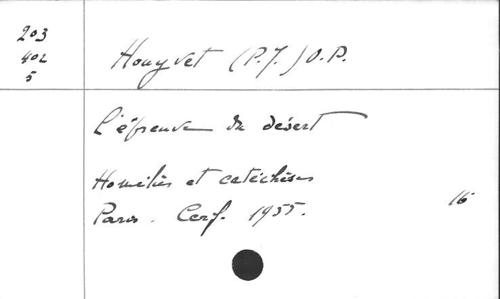 203
402
5
Houyvet (P.J.) O.P.
L'épreuve du désert
Homélies et catéchèses
Paris. Cerf. 1955.
16